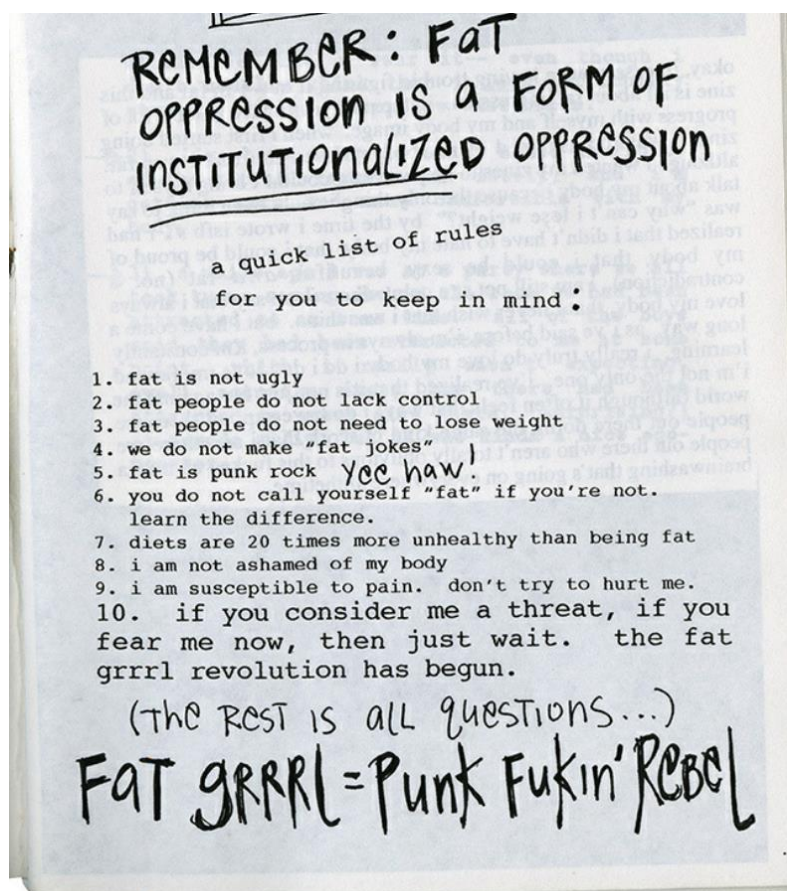 REMEMBER: FAT
OPPRESSION IS A FORM OF
INSTITUTIONALIZED OPPRESSION
a quick list of rules
for you to keep in mind:
1. fat is not ugly
2. fat people do not lack control
3. fat people do not need to lose weight
4. we do not make "fat jokes"
5. fat is punk rock YEE HAW!
6. you do not call yourself "fat" if you're not.
learn the difference.
7. diets are 20 times more unhealthy than being fat
8. i am not ashamed of my body
9. i am susceptible to pain. don't try to hurt me.
10. if you consider me a threat, if you
fear me now, then just wait. the fat
grrrl revolution has begun.
(THE REST IS ALL QUESTIONS...)
FAT GRRRL = PUNK FUKIN' REBEL